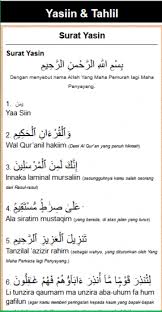 Yasiin & Tahlil
Surat Yasin
Surat Yasin
بِسْمِ اللَّهِ الرَّحْمَنِ الرَّحِيمِ
Dengan menyebut nama Allah Yang Maha Pemurah lagi Maha
Penyayang.
1. يس
Yaa Siin
2. وَالْقُرْءَانِ الْحَكِيمِ
Wal Qur'anil hakiim (Demi Al Qur'an yang penuh hikmah)
3. إِنَّكَ لَمِنَ الْمُرْسَلِينَ
Innaka laminal mursaliin (sesungguhnya kamu salah seorang
dari Rasul-rasul)
4. عَلَى صِرَاطٍ مُسْتَقِيمٍ
Ala siratim mustaqim (yang berada, di atas jalan yang lurus)
5. تَنْزِيلَ الْعَزِيزِ الرَّحِيمِ
Tanzilal 'azizir rahim (sebagai wahyu, yang diturunkan oleh Yang
Maha Perkasa lagi Penyayang).
6. لِتُنْذِرَ قَوْمًا مَا أُنْذِرَ ءَابَاؤُهُمْ فَهُمْ غَافِلُونَ
Li tunzira qaumam ma unzira aba-uhum fa hum
gafilun (agar kamu memberi peringatan kepada kaum yang bapak-bapak